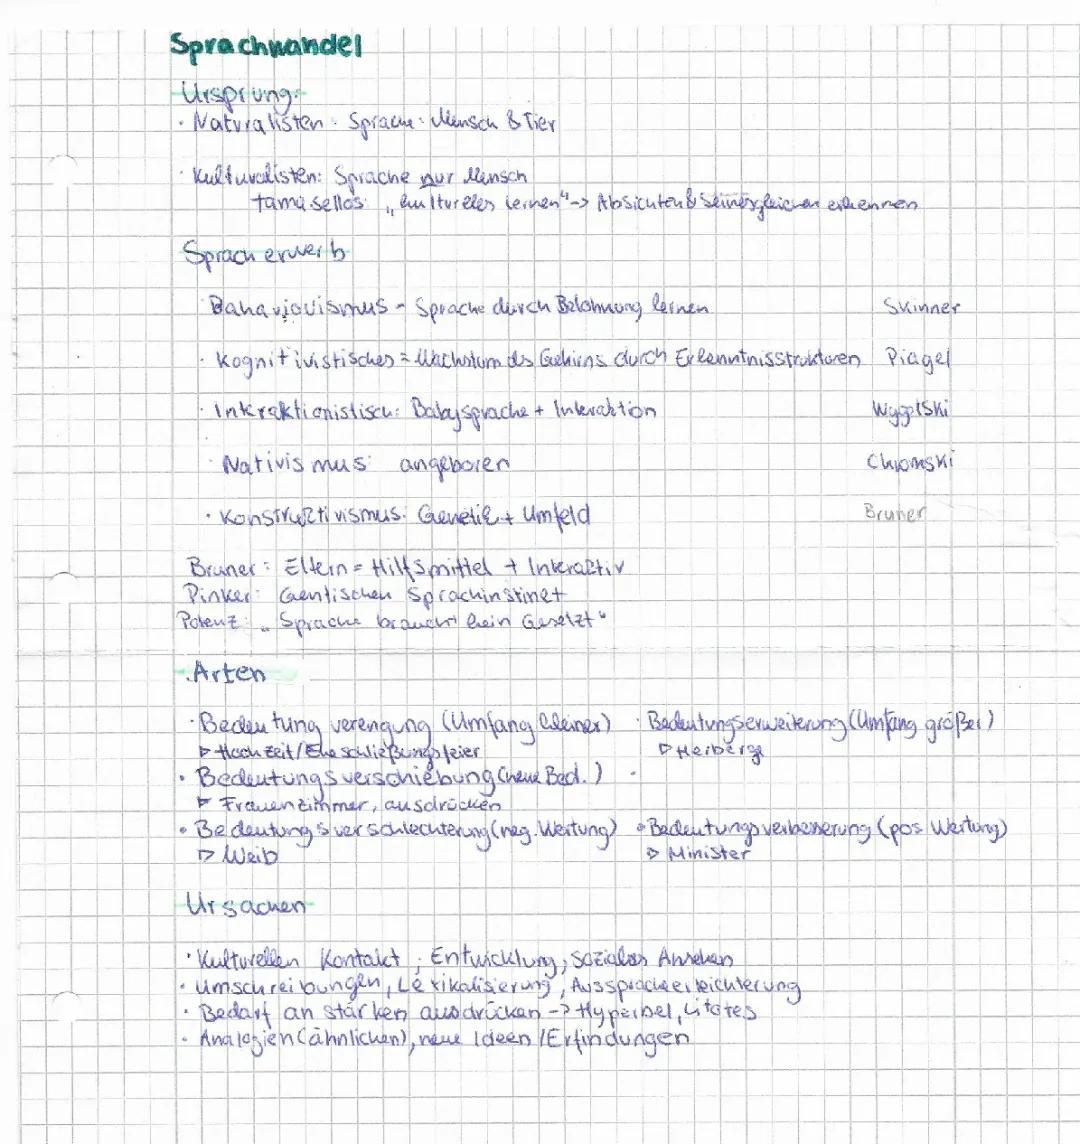 Sprachwandel
Ursprung:
· Naturalisten: Sprache: Mensch & Tier
· Kulturalisten: Sprache nur Mensch
Tamasellos: „kulturelles lernen" -> Absichten & seinesgleichen erkennen
Spracherwerb
Bahaviorismus - Sprache durch Belohnung lernen Skinner
· Kognitivistisches = Wachstum des Gehirns durch Erkenntnisstrukturen Piagel
· Interaktionistisch: Babysprache + Interaktion Wygotski
· Nativismus: angeboren Chromski
· Konstruktivismus: Genetik + Umfeld Bruner
Bruner: Eltern = Hilfsmittel + Interaktiv
Pinker: Gentischen Sprachinstinkt
Potenz: „Sprache braucht kein Gesetzt"
· Arten
· Bedeutung verengung (Umfang kleiner) · Bedeutungserweiterung (Umfang größer)
▷ Hochzeit/Eheschließungsfeier ▷ Herberge
· Bedeutungsverschiebung (neue Bed.) ·
▷ Frauenzimmer, ausdrücken
· Bedeutungsverschlechterung (neg. Wertung) · Bedeutungsverbesserung (pos Wertung)
▷ Weib ▷ Minister
Ursachen
· Kulturellen Kontakt, Entwicklung, soziales Ansehen
· Umschreibungen, Lexikalisierung, Ausspracheerleichterung
· Bedarf an starken ausdrücken -> Hyperbel, Litotes
· Analogien (ähnlichen), neue Ideen/Erfindungen